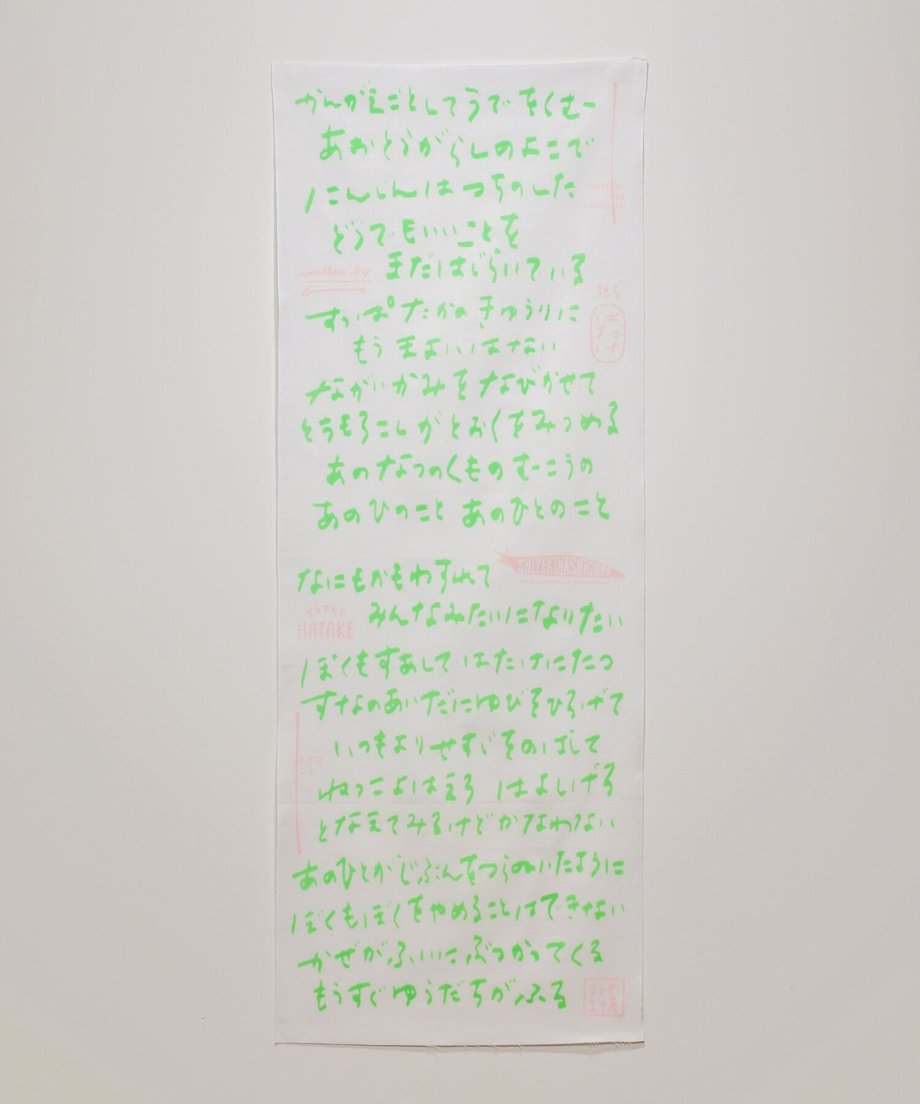 かんがえごとしてうでをくむー
あおとうがらしのよこで
にんじんはつちのした
どうでもいいことを
まだはじらいている
written by
すっぱだかの きゅうりに
もう まよいはない
ながいかみをなびかせて
とうもろこしがとおくをみつめる
あのなつのくもの むーこうの
あのひのこと あのひとのこと
SHITEKINASHIGOTO
なにもかもわすれて
TITLE
HATAKE
みんなみたいになりたい
ぼくもすあしではたけにたつ
すなのあいだにゆびをひろげて
いつもよりせすじをのばして
ねっこよはえろ はよしげろ
となえてみるけどかなわない
あのひとがじぶんをつらぬいたように
ぼくもぼくをやめることはできない
かぜがふいにぶつかってくる
もうすぐゆうだちがふる